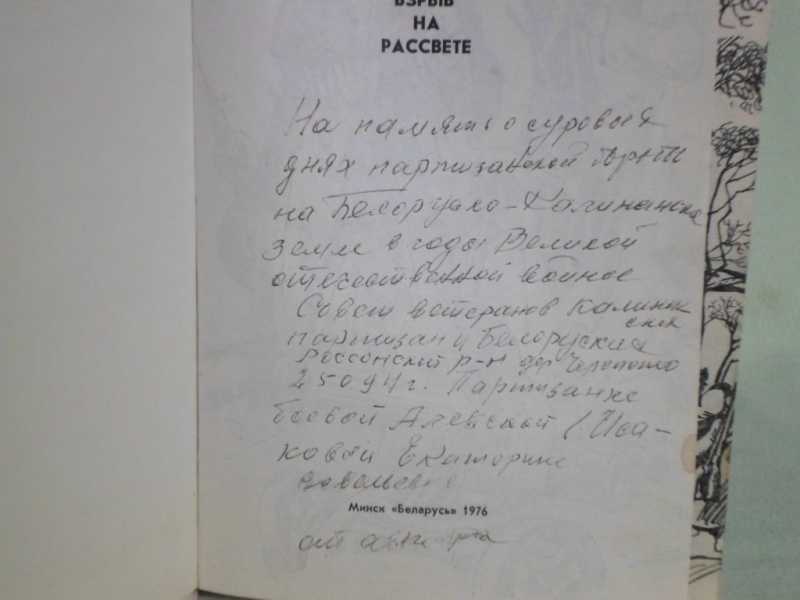 ВЗРЫВ
НА
РАССВЕТЕ
На память о суровых
днях партизанской
на Белоруско-Калининска
земле в годы Великой
отечественной войное
Совет ветеранов Калинин
ских
партизан и Белоруский
Россонский р-н дер
25094г. Партизанке
боевой (Ива-
ковой Екатерине
Минск «Беларусь» 1976
от автора